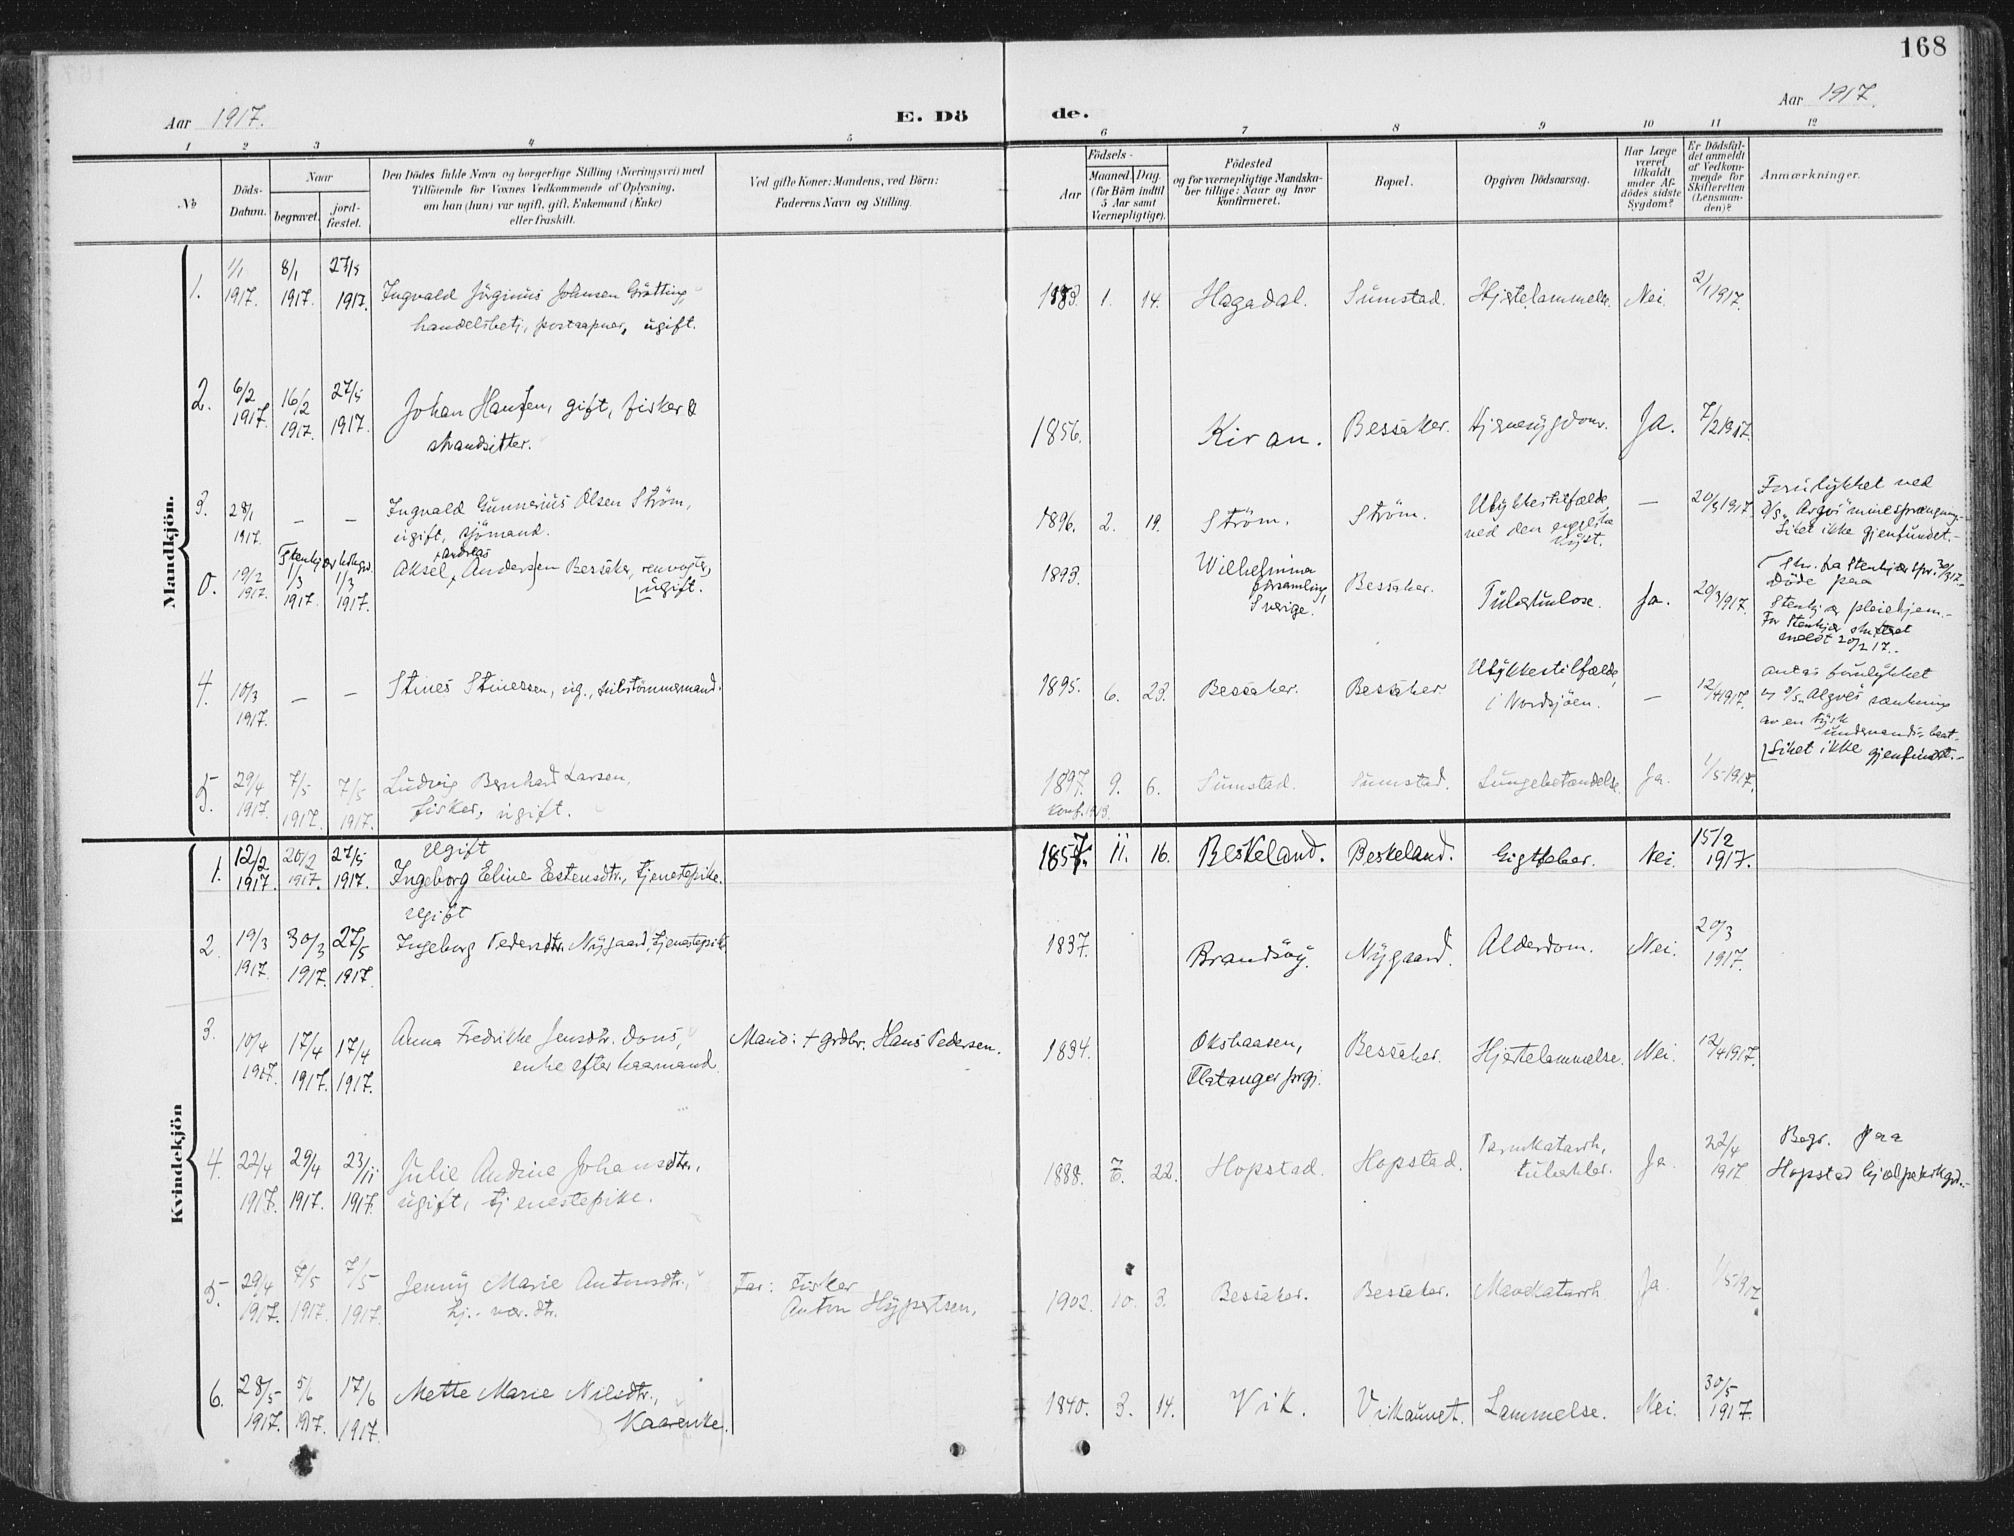 168
Aar 1917.
E. Döde.
Aar 1917.
1 2 3 4 5 6 7 8 9 10 11 12
No
Döds-Datum.
Naar
begravet.
jordfæstet.
Den Dödes fulde Navn og borgerlige Stilling (Næringsvei) med
Tilföiende for Voxnes Vedkommende af Oplysning,
om han (hun) var ugift, gift, Enkemand (Enke)
eller fraskilt.
Ved gifte Koner: Mandens, ved Börn:
Faderens Navn og Stilling.
Födsels-
Aar
Maaned. Dag.
(for Börn indtil
5 Aar samt
Værnepligtige).
Födested
og for værnepligtige Mandskaber tillige: Naar og hvor
konfirmeret.
Bopæl.
Opgiven Dödsaarsag.
Har Læge
været
tilkaldt
under Afdödes sidste
Sygdom?
Er Dödsfaldet anmeldt
af Vedkommende for
Skifteretten
(Lensmanden)?
Anmærkninger.
Mandkjön.
1. 1/1 1917. 8/1 1917. 27/5 1917. Ingvald Jörginus Johnsen Grötting
handelsbetj., postaapner, ugift.
1883. 1. 14. Hagadal. Sumstad. Hjertelammelse. Nei. 2/1 1917.
2. 6/2 1917. 16/2 1917. 27/5 1917. Johan Hansen, gift, fisker &
strandsitter.
1856. Kiran. Bessaker. Hjernesygdom. Ja. 7/2 1917.
3. 28/1 1917. — — Ingvald Gunnerius Olsen Ström,
ugift, sjömand.
1896. 2. 19. Ström. Ström. Ulykkestilfælde
ved den engelske
kyst. — 20/3 1917. Forulykket ved
Argo's minesprængning.
Liket ikke gjenfundet.-
0. 19/2 1917. Stenkjær kirkegd. 1/3 1917. 1/3 1917. Aksel Andreas Andersen Bessaker,
ugift.
1893. Wilhelmina
församling,
Sverige. Bessaker. Tuberkulose. Ja. 20/3 1917. Döde paa
Stenkjær pleiehjem.-
For Stenkjær skifteret
meldt 20/2 17.
4. 10/3 1917. — — Stines Stinessen, ug., tømmermand.
1895. 6. 23. Bessaker. Bessaker Ulykkestilfælde,
i Nordsjöen. — 12/4 1917. antas forulykket
av en tysk
undervandsbaat.
Liket ikke gjenfundet.-
5. 29/4 1917. 7/5 1917. 7/5 1917. Ludvig Bernhard Larsen,
fisker, ugift.
1897. 9. 6. Sumstad. Sumstad. Lungebetændelse. Ja. 1/5 1917.
Konf. 1913.
Kvindekjön
1. 12/2 1917. 20/2 1917. 27/5 1917. ugift
Ingeborg Eline Estensdtr., tjenestepike.
1857. 11. 16. Beskeland. Beskeland. Gigtfeber. Nei. 15/2 1917.
2. 19/3 1917. 30/3 1917. 27/5 1917. ugift
Ingeborg Pedersdtr. Nygaard, tjenestepike
1837. Brandsöy. Nygaard. Alderdom. Nei. 20/3 1917.
3. 10/4 1917. 17/4 1917. 17/4 1917. Anna Fredrikke Jensdtr. Dons,
enke efter kaarmand. Mand: † grdbr. Hans Pedersen.
1834. Okshaasen,
Flatanger prgj. Bessaker. Hjertelammelse. Nei. 12/4 1917.
4. 22/4 1917. 29/4 1917. 23/11 1917. Julie Andine Johansdtr.,
ugift, tjenestepike.
1888. 7. 22. Hopstad. Hopstad. Tarmkatarrh,
tuberkler. Ja. 22/4 1917 Begr. paa
Hopstad hjælpekirkgd.-
5. 29/4 1917. 7/5 1917. 7/5 1917. Jenny Marie Antonsdtr.,
hj.-vær. dtr. Far: Fisker
Anton Hypertsen,
1902. 10. 3. Bessaker. Bessaker. Mavekatarrh. Ja. 1/5 1917.
6. 28/5 1917. 5/6 1917. 17/6 1917. Mette Marie Nilsdtr.,
Kaarenke.
1840. 3. 14. Vik. Vikaunet. Lammelse. Nei. 30/5 1917.